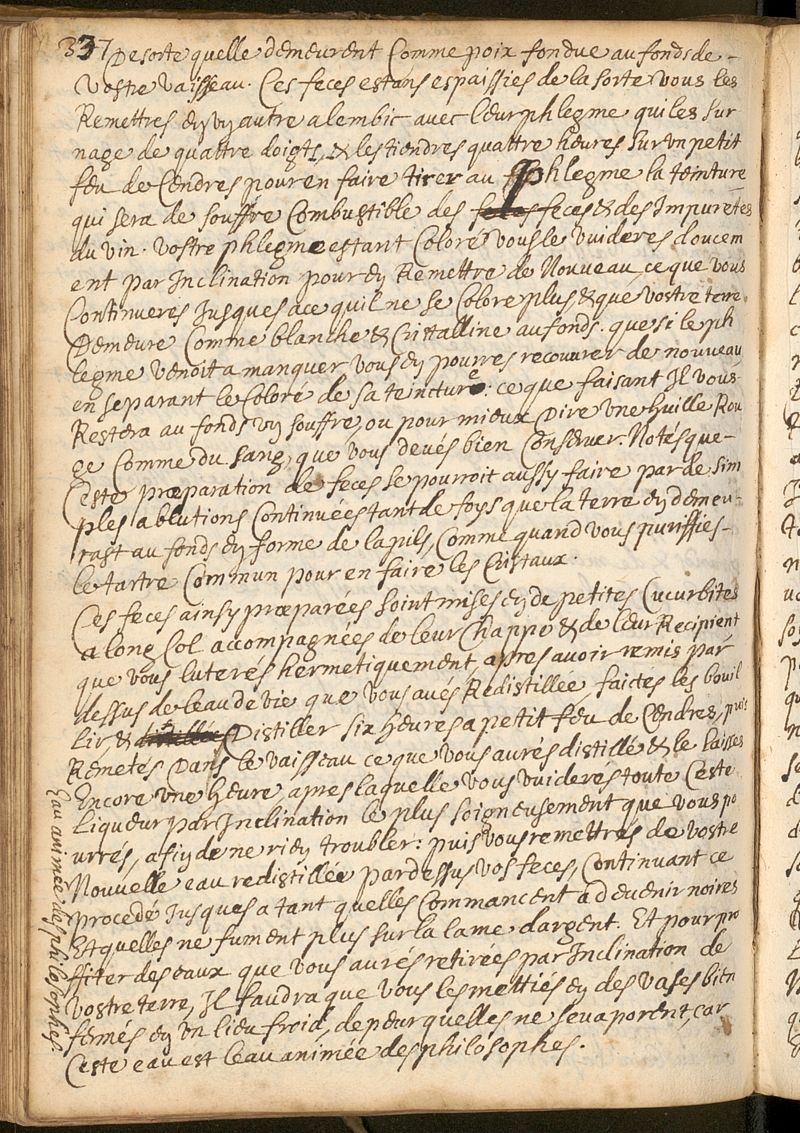 337 De sorte quelle demeurent Comme poix fondue au fonds de -
Vostre vaisseau. Ces feces estans espaissies de la sorte vous les
Remettres en un autre alembic avec leur phlegme qui les sur
nage de quattre doigts, & les tiendres quattre heures sur un petit
feu de Cendres pour en faire tirer au phlegme la teinture
qui sera de souffre Combustible des feces & des Impuretes
du vin. vostre phlegme estant Coloré vous le vuideres doucem
ent par Inclination pour en Remettre de Nouveau, ce que vous
Continueres Jusques a ce quil ne se Colore plus & que vostre terre
Demeure Comme blanche & Cristalline au fonds. que si le ph
legme venoit a manquer vous en pourres recouvrer de nouveau
en separant le Coloré de sa teincture: ce que faisant Il vous
Restera au fonds un souffre, ou pour mieux Dire une huille Rou
ge Comme du sang, que vous devés bien Conserver. Notés que -
Ceste præparation de feces se pourroit aussy faire par de sim
ples ablutions Continuées tant de foys que la terre en demeu-
rast au fonds en forme de lapils, Comme quand vous puriffies -
le tartre Commun pour en faire les Cristaux.
Ces feces ainsy præparées soint mises en de petites Cucurbites
a long Col accompagnées de leur Chappe & de leur Recipient
que vous luterés hermetiquement, apres avoir remis par
dessus de leau de vie que vous avés Redistillée, faictes les bouil
lir, & Distiller six heures a petit feu de Cendres, puis
Remetés Dans le vaisseau ce que vous aurés distillé & le laisses
Encore une heure, apres laquelle vous vuiderés toute Ceste
Liqueur par Inclination le plus soigneusement que vous po
urrés, afin de ne rien troubler: puis vous remettres de vostre
Nouvelle eau redistillée par dessus vos feces, Continuant ce
procedé Jusques a tant quelles Commancent a devenir noires
Et quelles ne fument plus sur la lame dargent. Et pour pro
ffiter des eaux que vous aurés retirées par Inclination de
vostre terre, Il faudra que vous les mettiés en des vases bien
fermés en un lieu froid, de peur quelles ne sevaporent, car
Ceste eau est leau animée des philosophes.
Eau animée des philosophes.